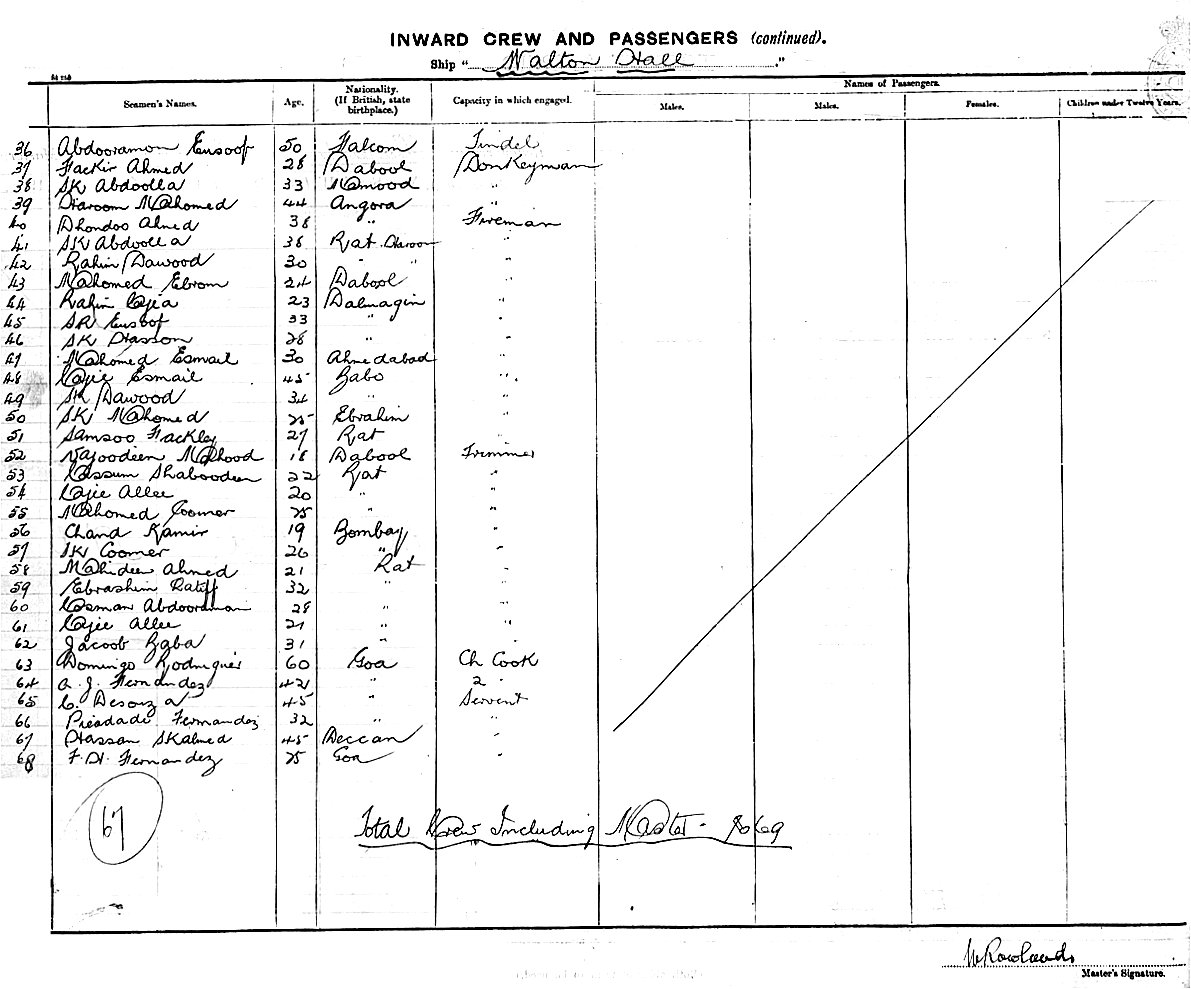 INWARD CREW AND PASSENGERS (continued).
Ship "Walton Hall"
Seamen's Names. Age. Nationality. (If British, state birthplace.) Capacity in which engaged. Names of Passengers.
Males. Males. Females. Children under Twelve Years.
36 Abdooramon Eusoof 50 Falcom Tindel
37 Fackir Ahmed 28 Dabool Donkeyman
38 SK Abdoolla 33 Mamood "
39 Haroom Mahomed 44 Angora "
40 Dhondoo Ahmed 38 " Fireman
41 SK Abdoolla 38 Rat Haroon "
42 Rahim Dawood 30 " " "
43 Mahomed Ebrom 24 Dabool "
44 Rahim Cajia 23 Dalmagin "
45 SK Eusoof 33 " "
46 SK Hasson 28 " "
47 Mahomed Esmail 30 Ahmedabad "
48 Cajie Esmail 45 Babo "
49 SK Dawood 34 " "
50 SK Mahomed 25 Ebrahim "
51 Samsoo Fackley 27 Rat "
52 Vajoodeen 18 Dabool Trimmer
53 Cassum Shaboodeen 22 Rat "
54 Cajie Allee 20 " "
55 Mahomed Coomer 25 " "
56 Chand Kamir 19 Bombay "
57 SK Coomer 26 " "
58 Mahideen Ahmed 21 Rat "
59 Ebrashim Ratiff 32 " "
60 Cosman Abdooraman 28 " "
61 Cajie Allee 21 " "
62 Jacoob Baba 31 " "
63 Domingo Rodriguer 60 Goa Ch Cook
64 A. J. Fernandez 42 " 2 "
65 C. Desouza 45 " Servent
66 Pieadade Fernandez 32 " "
67 Hassan SKahmed 45 Deccan "
68 F. H. Fernandez 25 Goa "
67
Total Crew Including Master - 69
W Rowlands
Master's Signature.